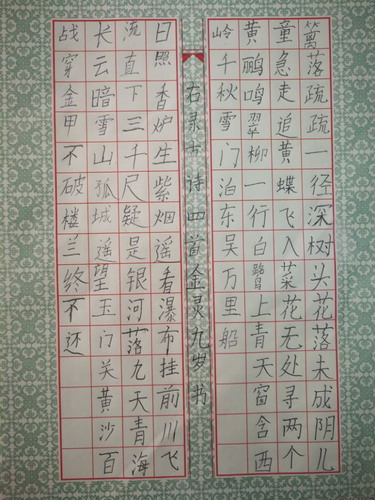 篱落疏疏一径深树头花落未成阴儿
童急走追黄蝶飞入菜花无处寻两个
黄鹂鸣翠柳一行白鹭上青天窗含西
岭千秋雪门泊东吴万里船
右录古诗四首金灵九岁书
日照香炉生紫烟遥看瀑布挂前川飞
流直下三千尺疑是银河落九天青海
长云暗雪山孤城遥望玉门关黄沙百
战穿金甲不破楼兰终不还